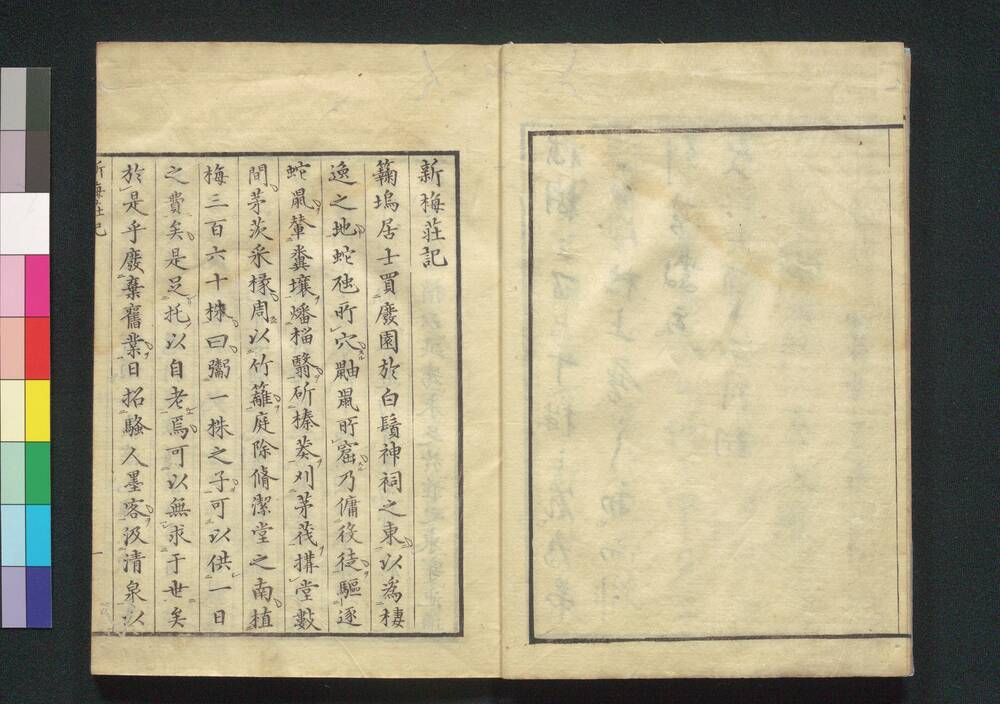 新梅荘記
鞠塢居士買廢園於白鬚神祠之東以為棲
逸之地蛇虺所穴鼬鼠所窟乃傭役徒驅逐
蛇鼠輦糞壤燔榴翳斫榛葵刈茅茷搆堂數
間茅茨采椽周以竹籬庭除脩潔堂之南植
梅三百六十株曰鬻一株之子可以供一日
之費矣是足托以自老焉可以無求于世矣
於是乎廢棄舊業日招騷人墨客汲清泉以
新梅荘記
一